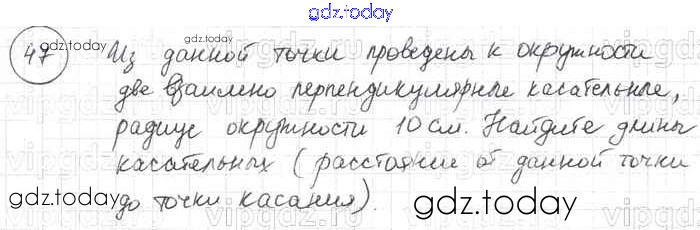 gdz.today
47 Из данной точки проведены к окружности
gdz.today
две взаимно перпендикулярные касательные,
радиус окружности 10 см. Найдите длины
касательных (расстояние от данной точки
gdz.today до точки касания). gdz.today